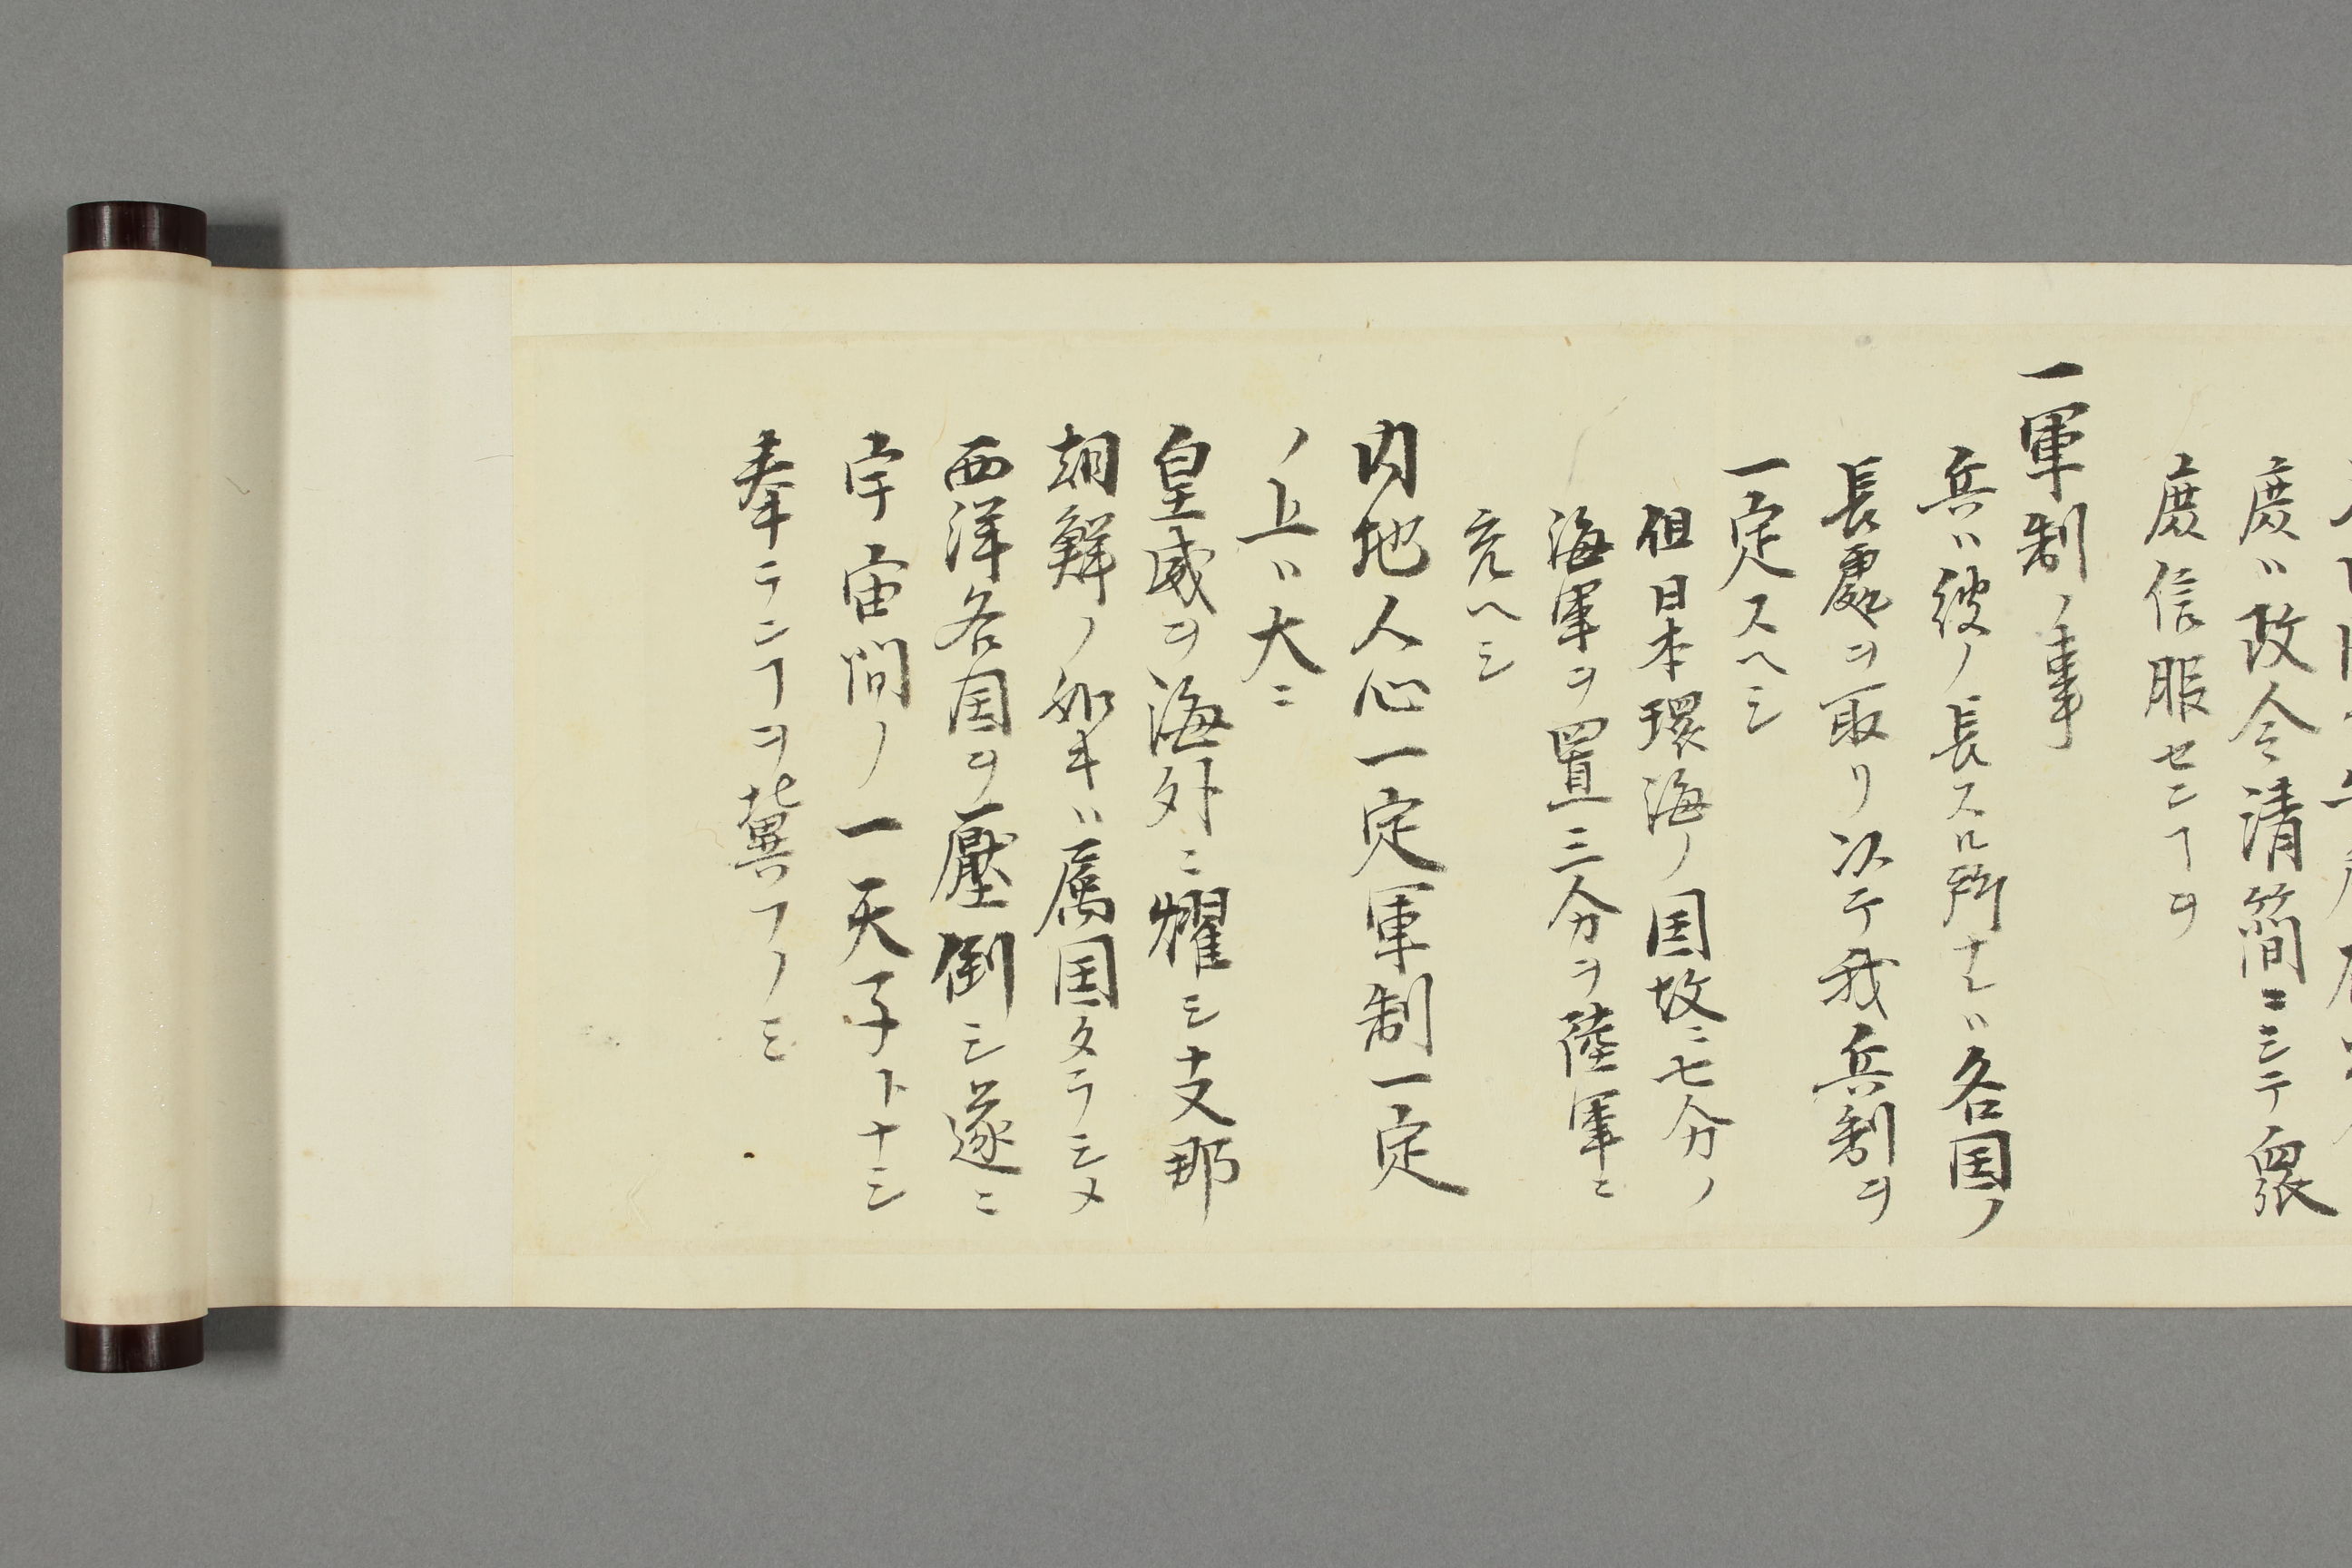 度ハ政令清簡ニシテ衆
庶信服センヿヲ
一軍制ノ事
兵ハ彼ノ長スル所ナレハ各国ノ
長處ヲ取リ以テ我兵制ヲ
一定スヘシ
但日本環海ノ国故ニ七分ノ
海軍ヲ置三分ヲ陸軍ニ
充ヘシ
内地人心一定軍制一定
ノ上ハ大ニ
皇威ヲ海外ニ耀シ支那
朝鮮ノ如キハ属国タラシメ
西洋各国ヲ壓倒シ遂ニ
宇宙間ノ一天子トナシ
奉ランヿヲ冀フノミ